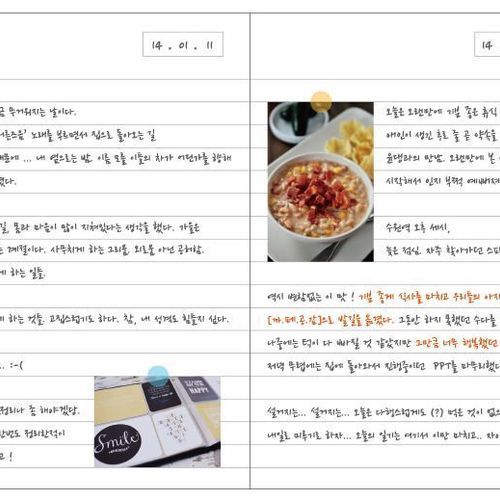 14 . 01 . 11
금 무거워지는 날이다.
노래를 부르면서 집으로 돌아오는 길
때문에 ... 내 옆으로는 밤. 이름 모를 이들의 차가 어딘가를 향해
졌다.
길, 몰라 마음이 많이 지쳐있다는 생각을 했다. 가을은
계절이다. 사무치게 하는 그리움, 외로움 아닌 공허함.
게 하는 일들.
게 하는 것들. 고집스럽기도 하다. 참, 내 성격도 힘들지 싶다.
.. :-(
정리나 좀 해야겠다.
한번도 정리한적이
고 !
Smile
HAPPY
14
오늘은 오랜만에 기분 좋은 휴식
애인이 생긴 후로 줄 곧 약속을
윤댕라의 만남. 오랜만에 본
시작해서 인지 부쩍 예뻐져
수원역 오후 세시,
늦은 점심. 자주 찾아가던 스파
역시 변함없는 이 맛 ! 기분 좋게 식사를 마치고 우리들의 아지
[까.페.공.감]으로 발길을 옮겼다. 그동안 하지 못했던 수다를
나중에는 턱이 다 빠질 것 같았지만 그만큼 너무 행복했던
저녁 무렵에는 집에 돌아와서 진행중이던 PPT를 마무리했다
설거지는... 설거지는... 오늘은 다행스럽게도 (?) 먹은 것이 없으
내일로 미루기로 하자... 오늘의 일기는 여기서 이만 마치고.. 자야